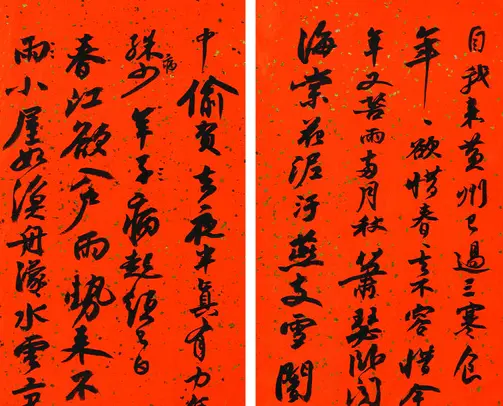 自我来黄州已過三寒食
年〻欲惜春〻去不容惜今
年又苦雨兩月秋蕭瑟卧聞
海棠花泥汙燕支雪闇
中偷負去夜半真有力
殊少年子病起須已白
病
春江欲入户雨勢來不
雨小屋如漁舟濛水雲